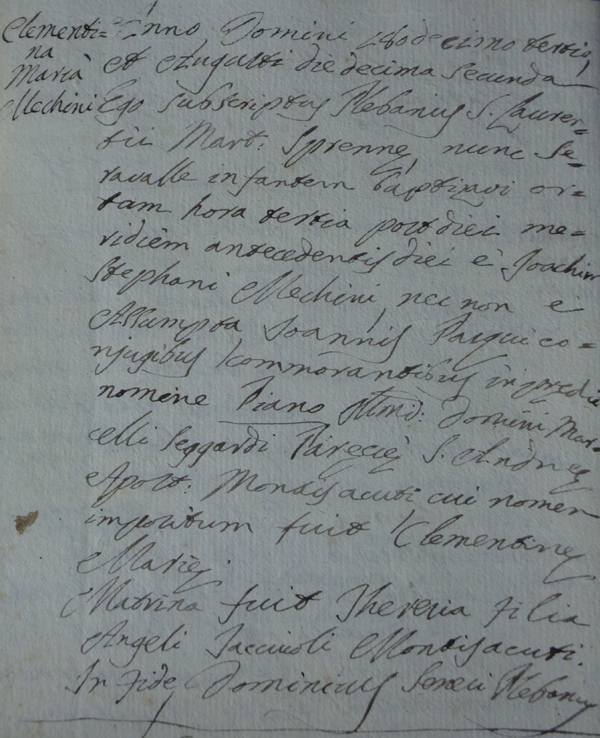 Clementi=
na
Maria
Mechini
Anno Domini 18o decimo tertio,
et Augusti die decima secunda
Ego subscriptus Plebanus S. Lauren=
tii Mart: Sprenne, nunc Se=
ravalle infantem baptizavi or=
tam hora tertia post diei me=
ridiem antecedentis diei è Joachim
Stephani Mechini, nec non è
Assumpta Joannis Pasqui co=
njugibus commorantibus in prædio
nomine Piano Illmi: Domini Mar=
celli Seggardi Parecię S. Andreę
Apost: Montisacuti cui nomen
impositum fuit Clementinę
Marię.
Matrina fuit Theresia Filia
Angeli Montisacuti.
In Fide Dominicus Plebanus